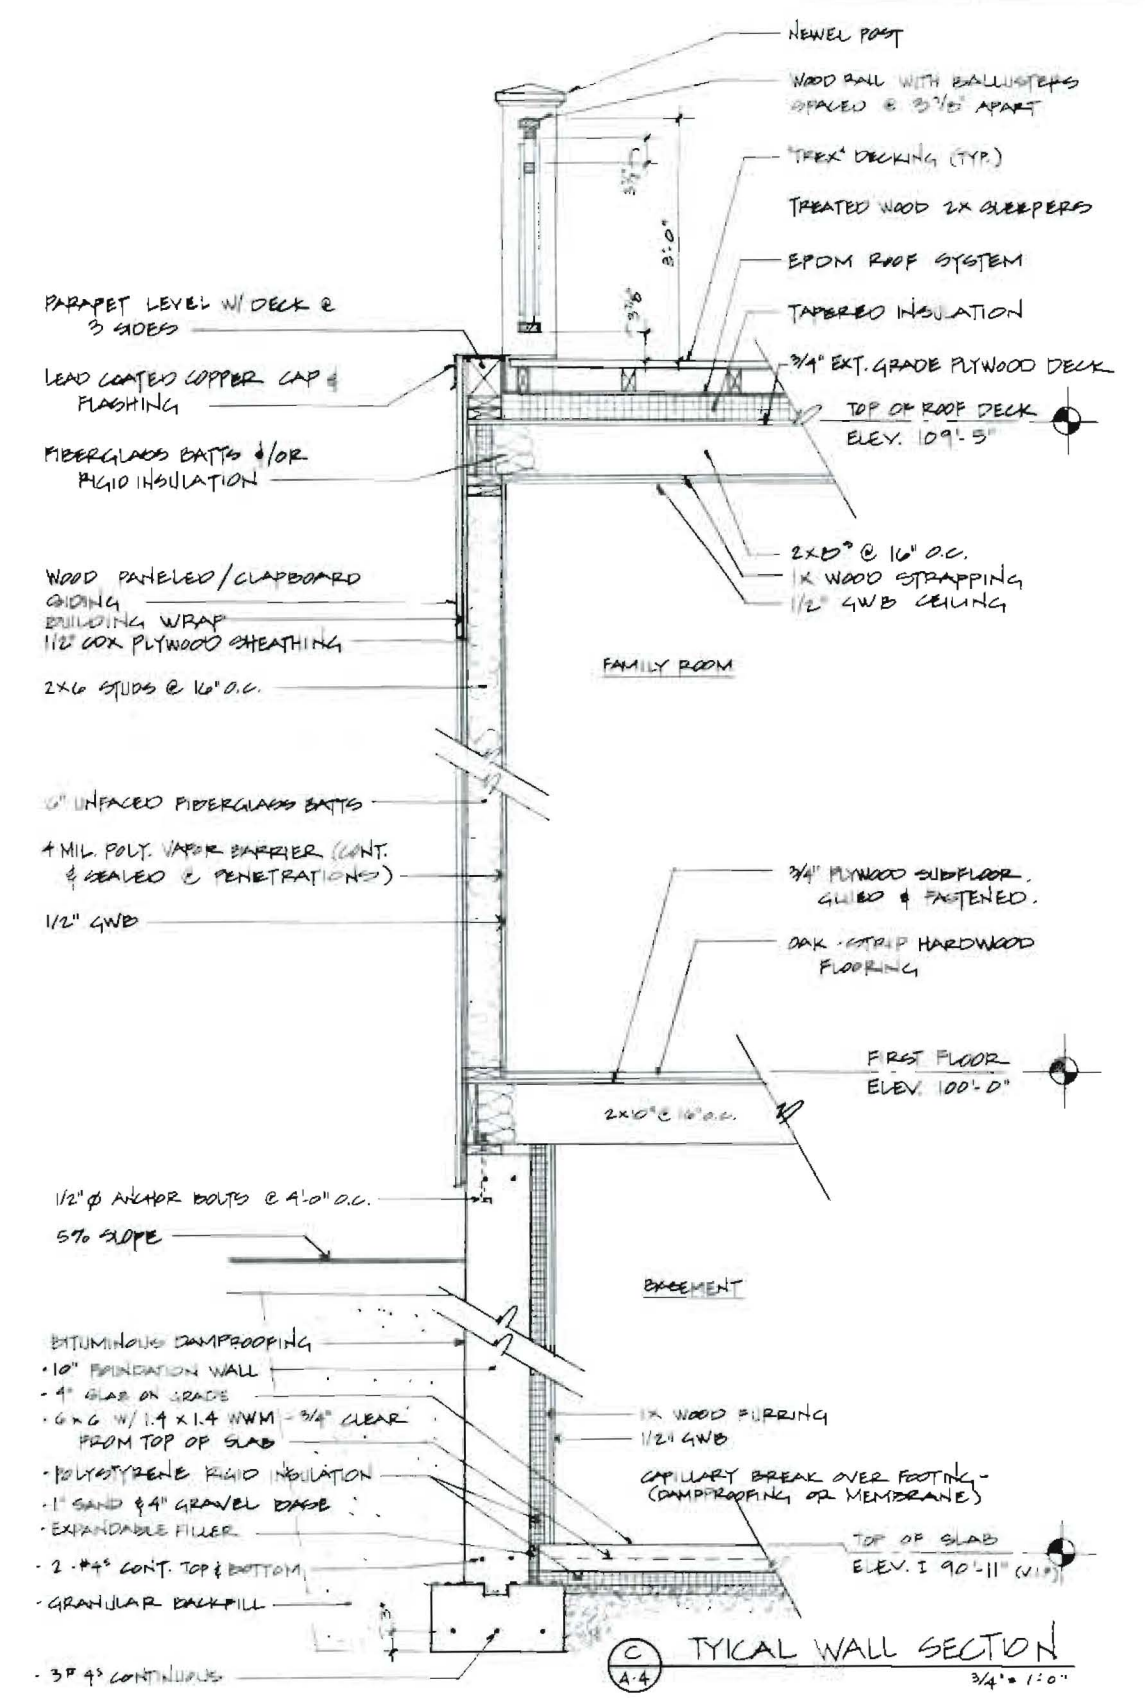 NEWEL POST
WOOD RAIL WITH BALLUSTERS
SPACED @ 3 7/8" APART
"TREX" DECKING (TYP.)
TREATED WOOD 2X SLEEPERS
EPDM ROOF SYSTEM
TAPERED INSULATION
3/4" EXT. GRADE PLYWOOD DECK
TOP OF ROOF DECK
ELEV. 109'-5"
3'-0"
PARAPET LEVEL W/ DECK @
3 SIDES
LEAD COATED COPPER CAP &
FLASHING
FIBERGLASS BATTS &/OR
RIGID INSULATION
2X8'S @ 16" O.C.
1X WOOD STRAPPING
1/2" GWB CEILING
WOOD PANELED/CLAPBOARD
SIDING
BUILDING WRAP
1/2" CDX PLYWOOD SHEATHING
2X6 STUDS @ 16" O.C.
FAMILY ROOM
6" UNFACED FIBERGLASS BATTS
4 MIL. POLY. VAPOR BARRIER (CONT.
& SEALED @ PENETRATIONS)
1/2" GWB
3/4" PLYWOOD SUBFLOOR.
GLUED & FASTENED.
OAK STRIP HARDWOOD
FLOORING
FIRST FLOOR
ELEV. 100'-0"
2X10'S @ 16" O.C.
1/2" Ø ANCHOR BOLTS @ 4'-0" O.C.
5% SLOPE
BASEMENT
BITUMINOUS DAMPROOFING
·10" FOUNDATION WALL
- 4" SLAB ON GRADE
·6X6 W/ 1.4 X 1.4 WWM - 3/4" CLEAR
FROM TOP OF SLAB
·POLYSTYRENE RIGID INSULATION
·1" SAND & 4" GRAVEL BASE
·EXPANDABLE FILLER
·2-#4S CONT. TOP & BOTTOM
·GRANULAR BACKFILL
3"
·3# 4S CONTINUOUS
1X WOOD FURRING
1/2" GWB
CAPILLARY BREAK OVER FOOTING-
(DAMPPROOFING OR MEMBRANE)
TOP OF SLAB
ELEV. ± 90'-11" (V.I.F.)
C
A-4
TYICAL WALL SECTION
3/4" = 1'-0"